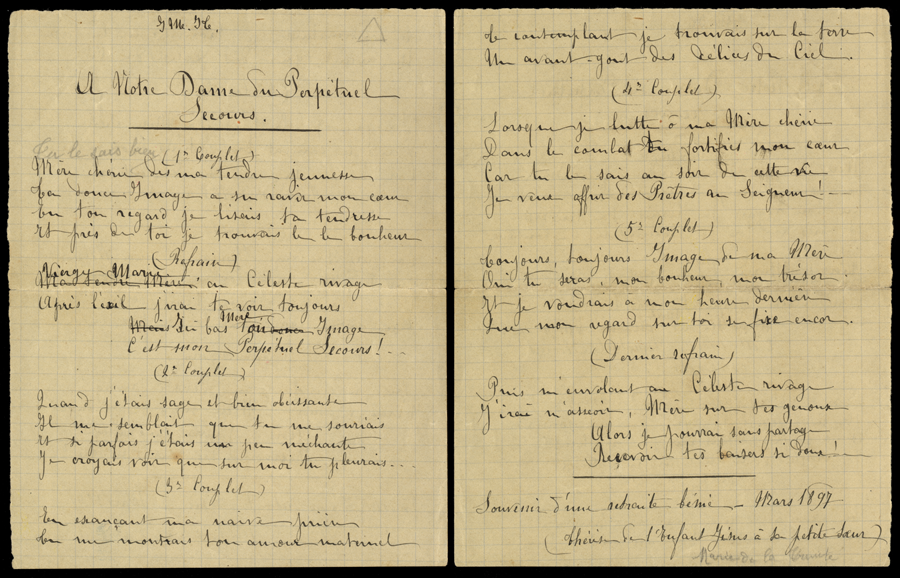 J.M.J.T.
A Notre Dame du Perpétuel
Secours.
Tu le sais bien
(1er Couplet)
Mère chérie dès ma tendre jeunesse
Ta douce Image a su ravir mon cœur
En ton regard je lisais ta tendresse
Et près de toi je trouvais le bonheur
(Refrain)
Vierge Marie
Ma tendre Mère au Céleste rivage
Après l'exil j'irai te voir toujours
Mère
Mais Ici bas Ton douce Image
C'est mon Perpétuel Secours! . . .
(2e Couplet)
Quand j'étais sage et bien obéissante
Il me semblait que tu me souriais
Et si parfois j'étais un peu méchante
Je croyais voir que sur moi tu pleurais. . .
(3e Couplet)
En exauçant ma naïve prière
Tu me montrais ton amour maternel
Te contemplant je trouvais sur la terre
Un avant-goût des délices du Ciel.
(4e Couplet)
Lorsque je lutte ô ma Mère chérie
Dans le combat tu fortifies mon cœur
Car tu le sais au soir de cette vie
Je veux offrir des Prêtres au Seigneur! . .
(5e Couplet)
Toujours, toujours Image de ma Mère
Oui tu seras, mon bonheur, mon trésor.
Et je voudrais à mon heure dernière
Que mon regard sur toi se fixe encor.
(Dernier refrain)
Puis m'envolant au Céleste rivage
J'irai m'asseoir, Mère sur tes genoux
Alors je pourrai sans partage
Recevoir tes baisers si doux! . .
Souvenir d'une retraite bénie — Mars 1897
(Thérèse de l'Enfant Jésus à sa petite sœur)
Marie de la Trinité